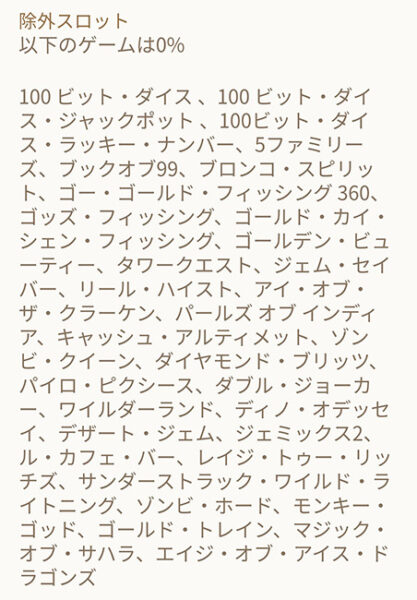 除外スロット
以下のゲームは0%
100 ビット・ダイス 、100 ビット・ダイ
ス・ジャックポット 、100ビット・ダイ
ス・ラッキー・ナンバー、5ファミリー
ズ、ブックオブ99、ブロンコ・スピリッ
ト、ゴー・ゴールド・フィッシング 360、
ゴッズ・フィッシング、ゴールド・カイ・
シェン・フィッシング、ゴールデン・ビュ
ーティー、タワークエスト、ジェム・セイ
バー、リール・ハイスト、アイ・オブ・
ザ・クラーケン、パールズ オブ インディ
ア、キャッシュ・アルティメット、ゾン
ビ・クイーン、ダイヤモンド・ブリッツ、
パイロ・ピクシース、ダブル・ジョーカ
ー、ワイルダーランド、ディノ・オデッセ
イ、デザート・ジェム、ジェミックス2、
ル・カフェ・バー、レイジ・トゥー・リッ
チズ、サンダーストラック・ワイルド・ラ
イトニング、ゾンビ・ホード、モンキー・
ゴッド、ゴールド・トレイン、マジック・
オブ・サハラ、エイジ・オブ・アイス・ド
ラゴンズ